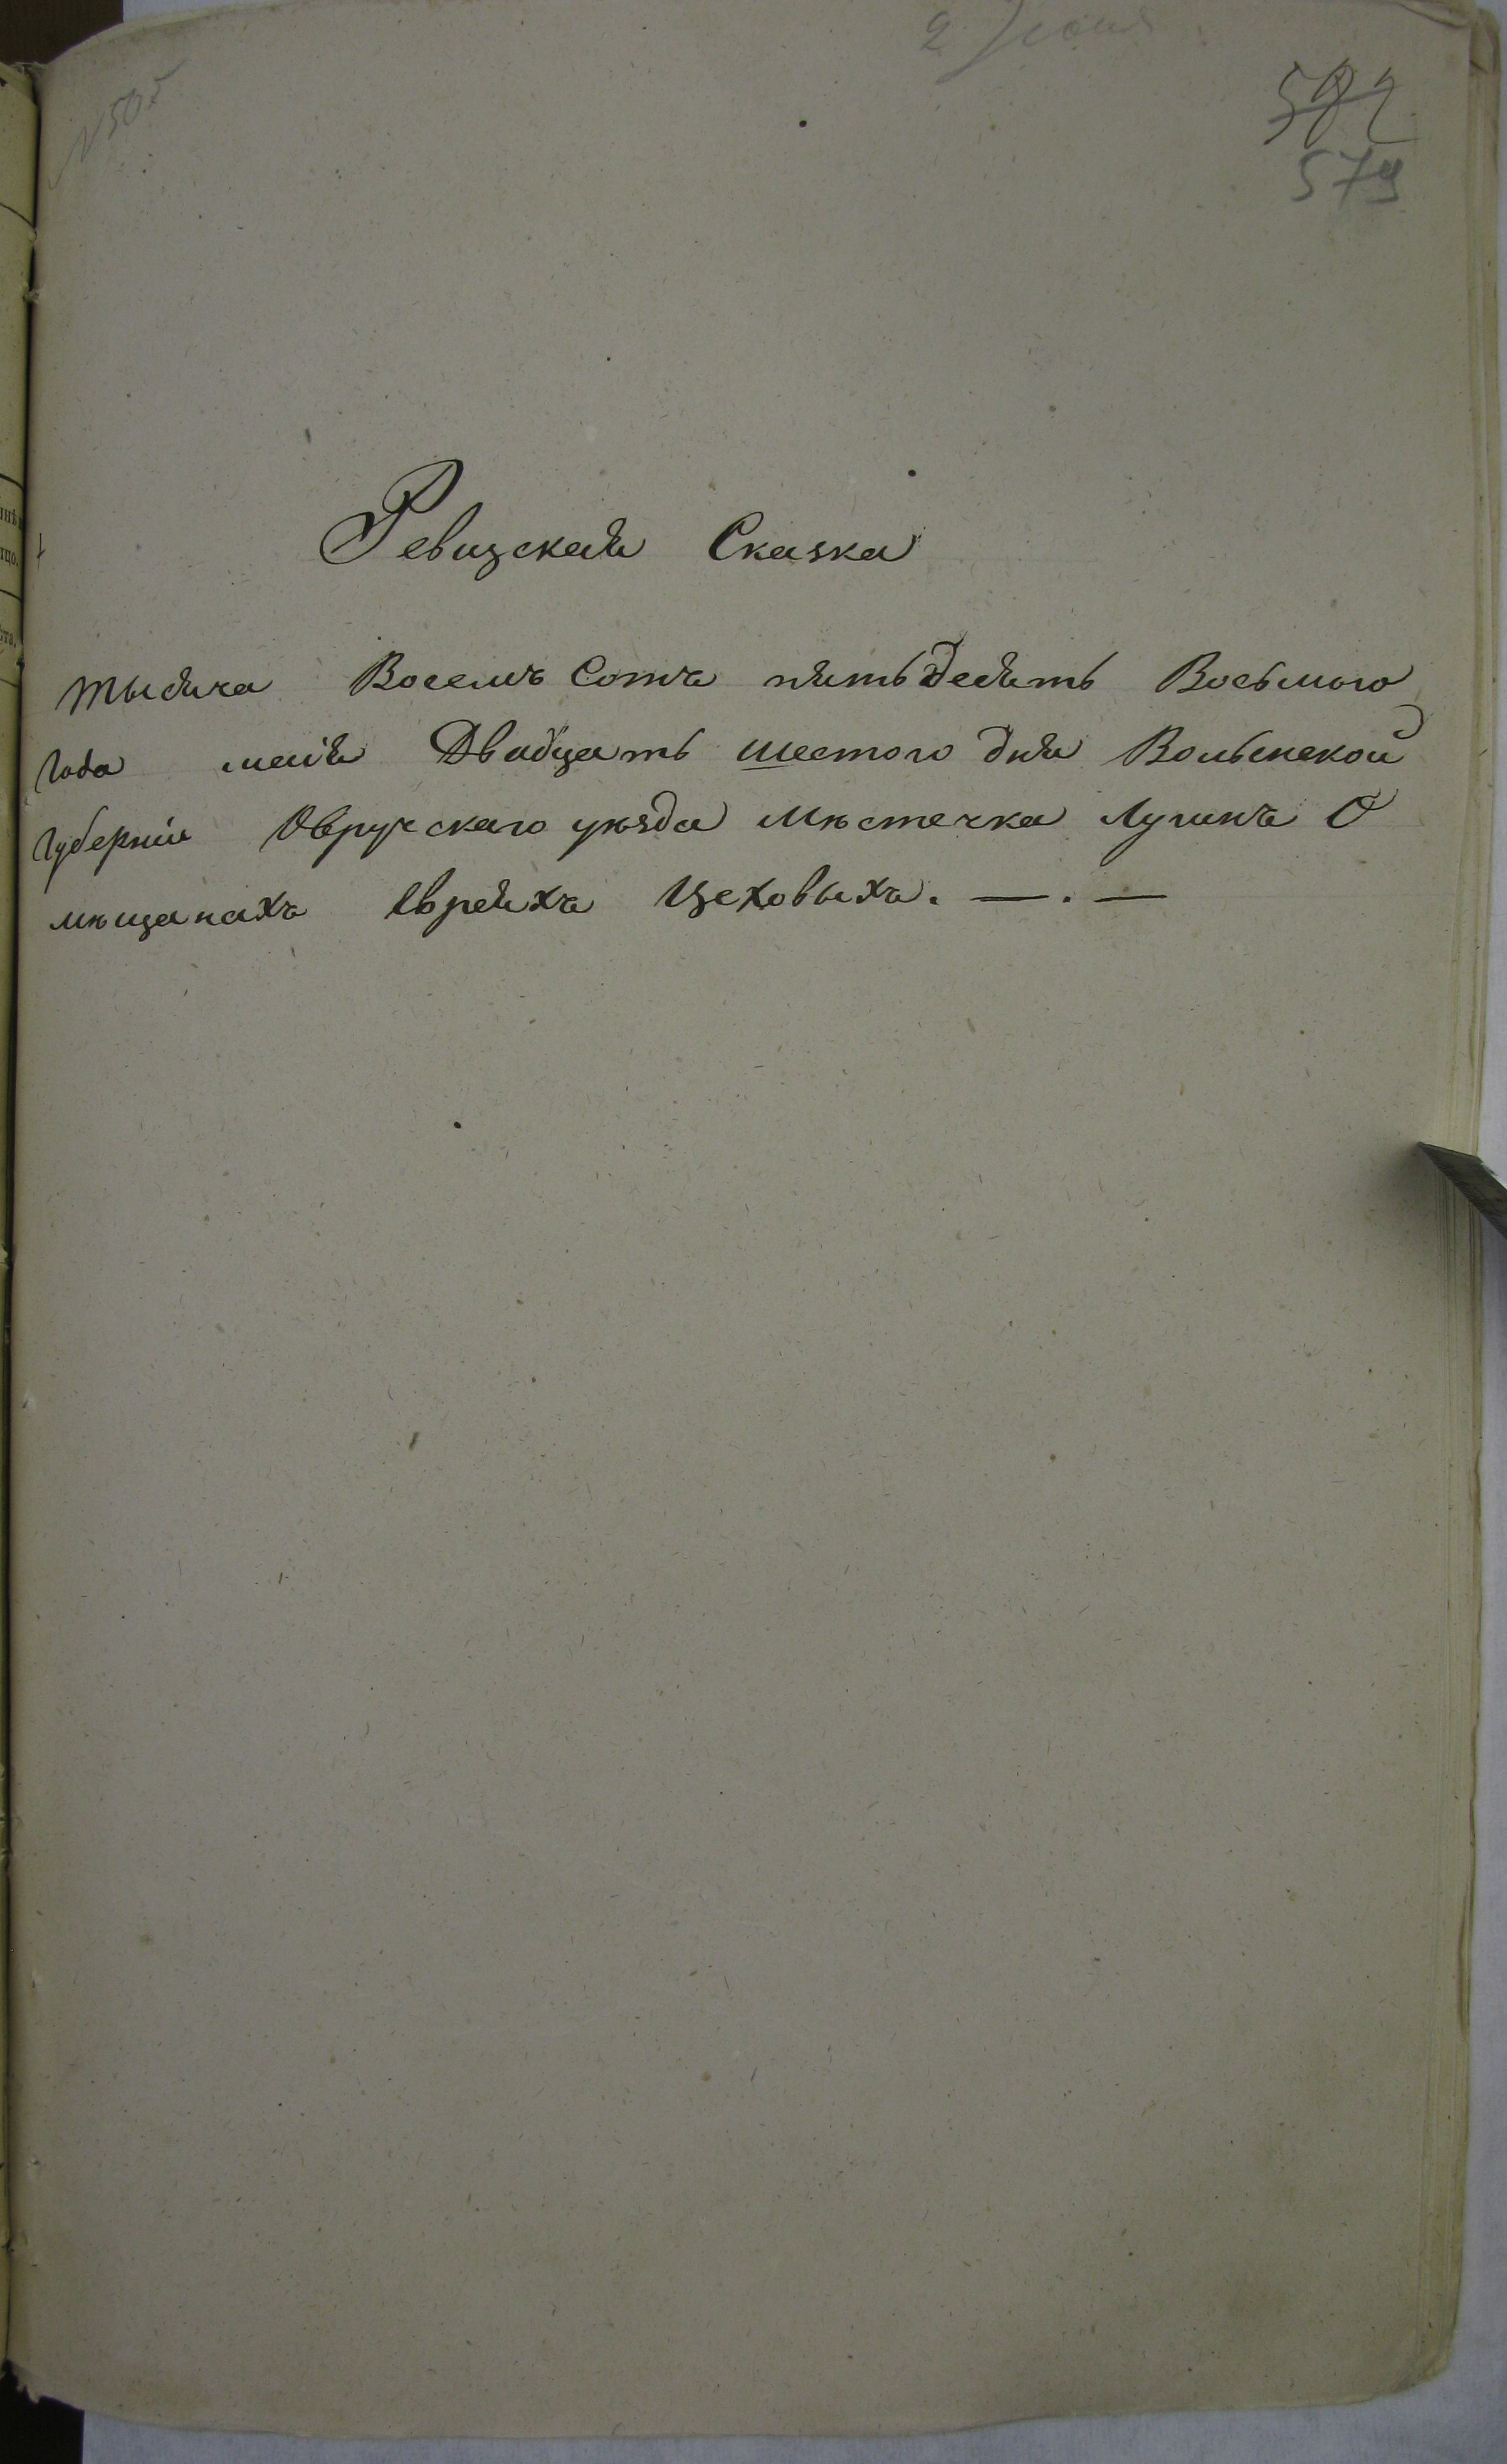 2 Июня
№ 505
582
579
Ревизская Сказка
тысяча Восемъ Сотъ пятьдесятъ Восьмого
года маія Двадцать шестого дня Волынской
губерніи Овручскаго уѣзда мѣстечка Лугинъ О
мѣщанахъ Евреяхъ Цеховыхъ. — . —